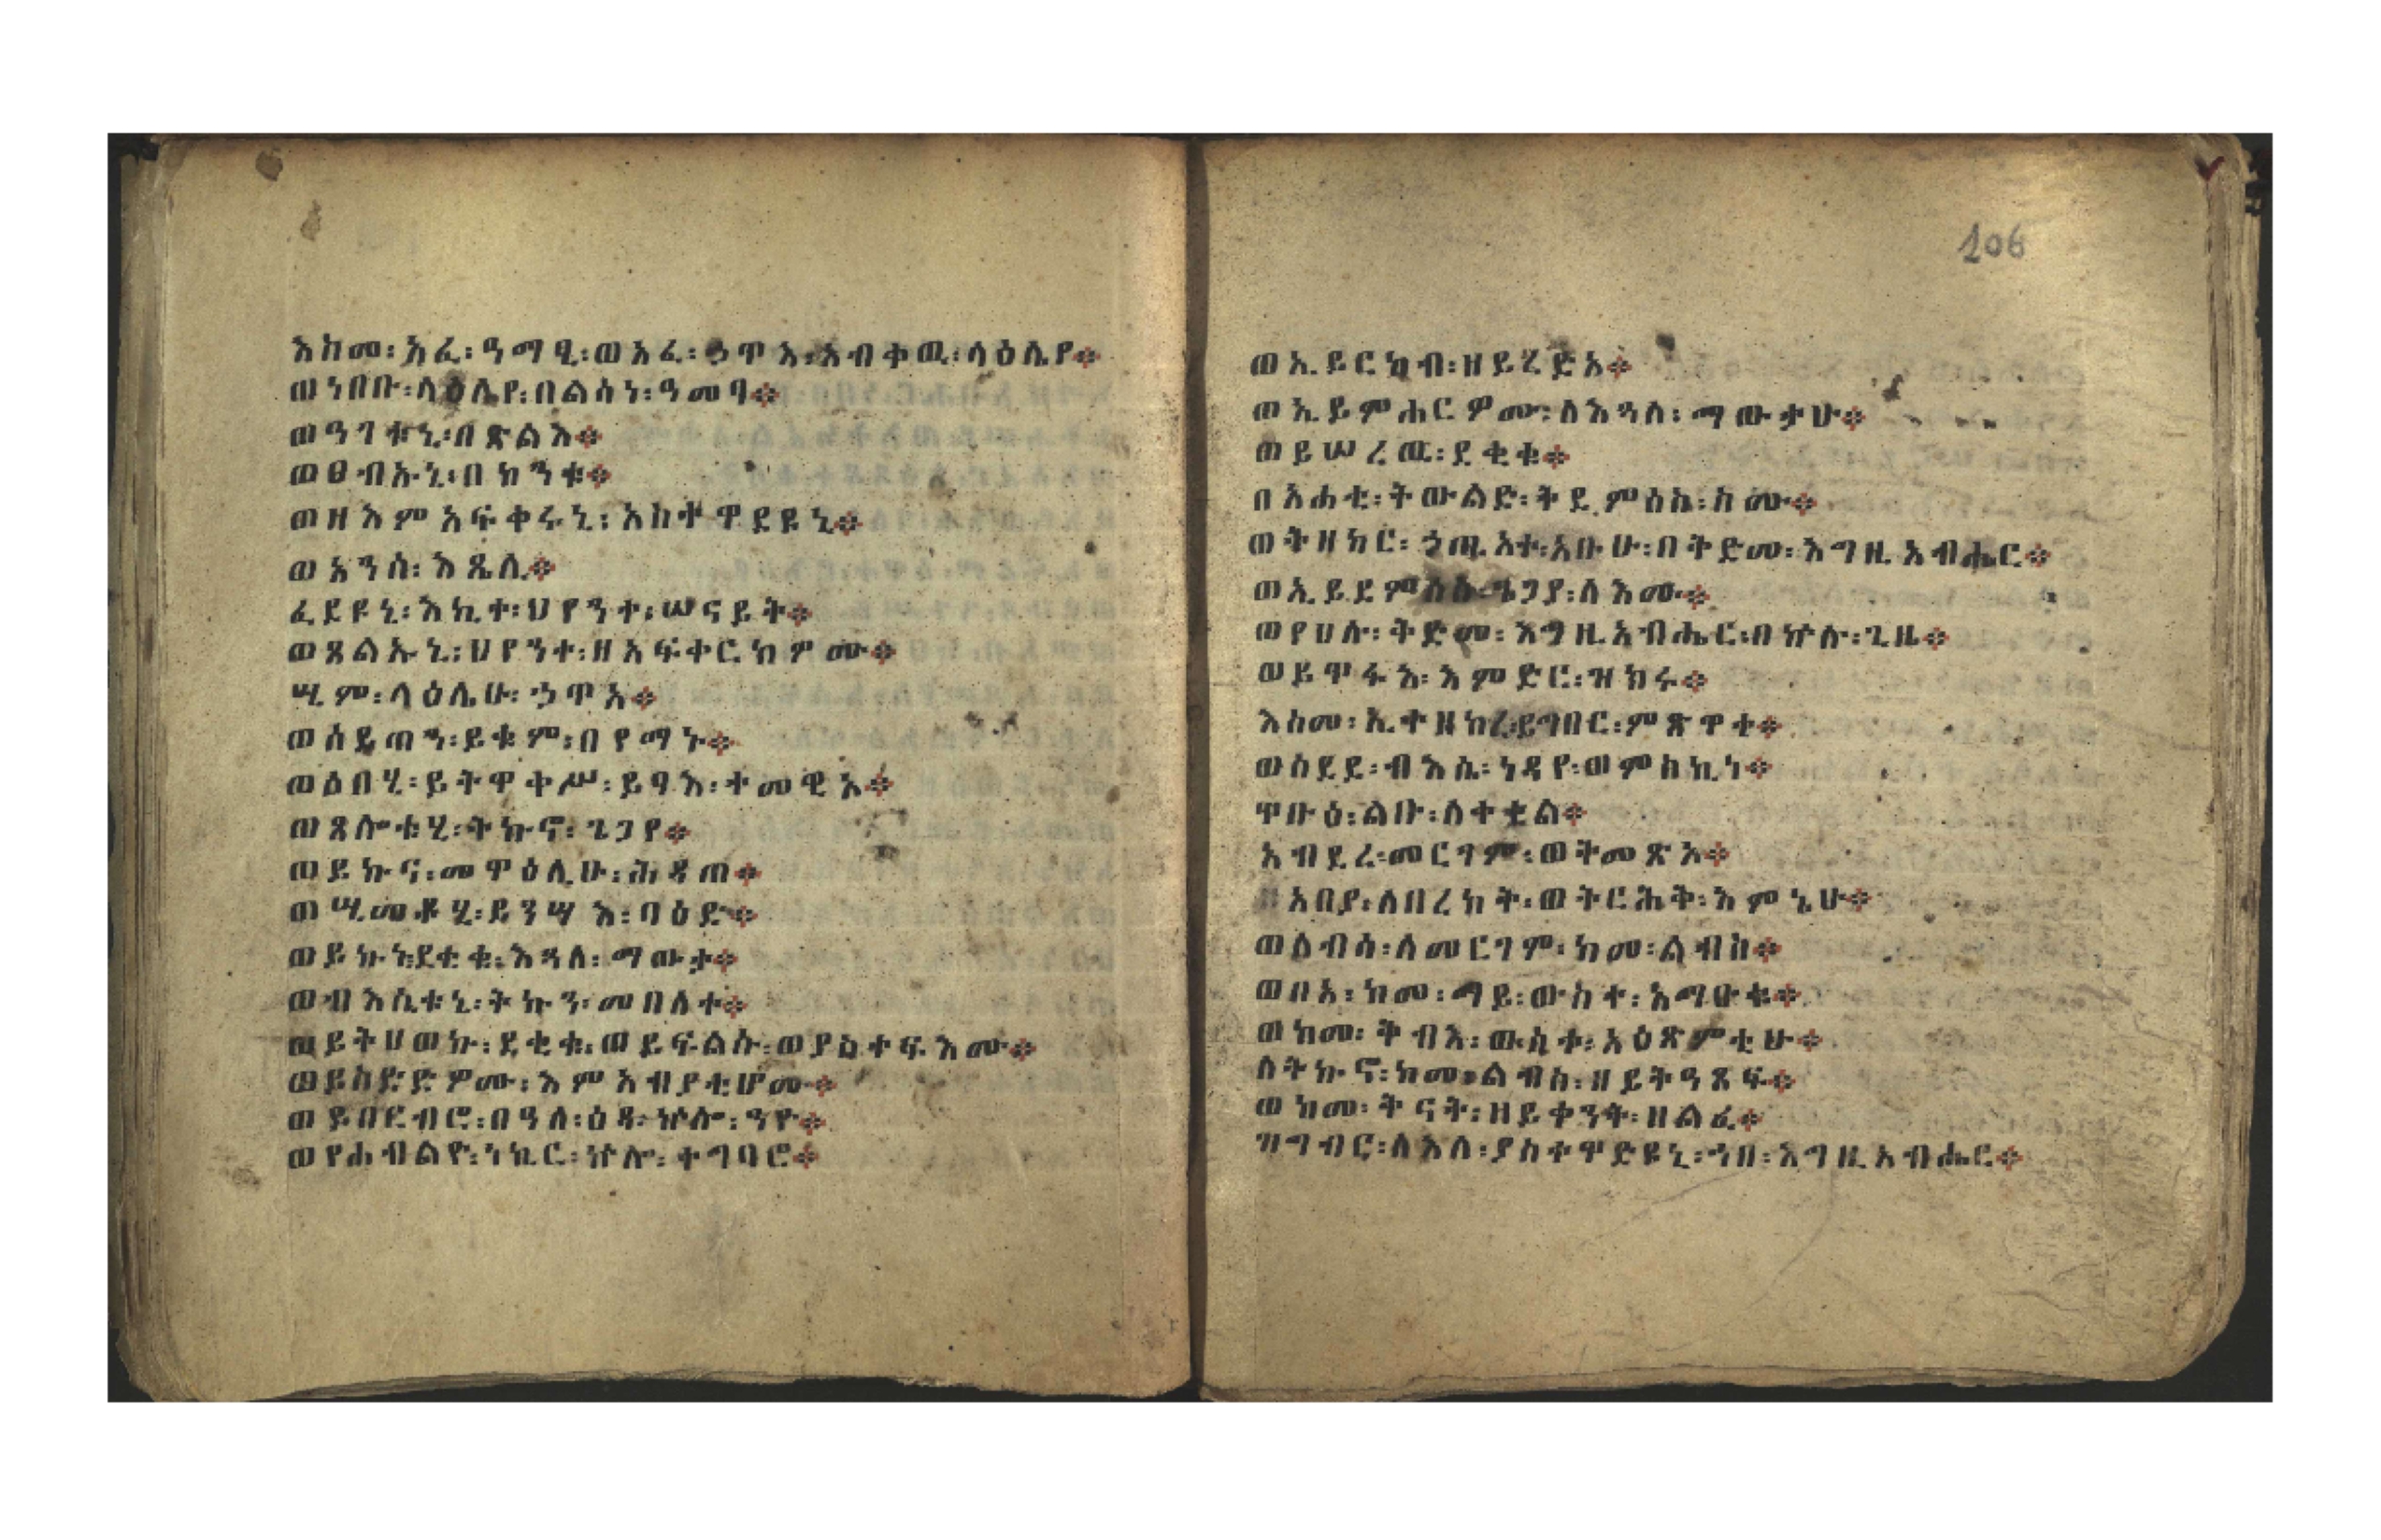 እስመ፡አፈ፡ዓማፂ፡ወአፈ፡ኃጥእ፡አብቀዉ፡ላዕሌየ።
ወነበቡ፡ላዕሌየ፡በልሳነ፡ዓመፃ።
ወዓገቱኒ፡በጽልእ።
ወፀብኡኒ፡በከንቱ።
ወዘእምአፍቀሩኒ፡አስተዋደዩኒ።
ወአንሰ፡እጼሊ።
ፈደዩኒ፡እኪተ፡ህየንተ፡ሠናይት።
ወጸልኡኒ፡ህየንተ፡ዘአፍቀርክዎሙ።
ሢም፡ላዕሌሁ፡ኃጥአ።
ወሰይጠን፡ይቁም፡በየማኑ።
ወሶበሂ፡ይትዋቀሥ፡ይፃእ፡ተመዊኦ።
ወጸሎቱሂ፡ትኩኖ፡ጌጋየ።
ወይኩና፡መዋዕሊሁ፡ሕዳጠ።
ወሢመቶሂ፡ይንሣእ፡ባዕድ።
ወይኩኑ፡ደቂቁ፡እጓለ፡ማውታ።
ወብእሲቱኒ፡ትኩን፡መበለተ።
ወይትሀወኩ፡ደቂቁ፡ወይፍልሱ፡ወያስተፍእሙ።
ወይስድድዎሙ፡እምአብያቲሆሙ።
ወይበርብሮ፡በዓለ፡ዕዳ፡ኵሎ፡ንዋዮ።
ወየሐብልዮ፡ነኪር፡ኵሎ፡ተግባሮ።
106
ወኢይርከብ፡ዘይረድኦ።
ወኢይምሐርዎሙ፡ለእጓለ፡ማውታሁ።
ወይሠረዉ፡ደቂቁ።
በአሐቲ፡ትውልድ፡ትደምሰስ፡ስሙ።
ወትዘከር፡ኃጢአተ፡አቡሁ፡በቅድመ፡እግዚአብሔር።
ወኢይደምሰስ፡ጌጋያ፡ለእሙ።
ወየሀሉ፡ቅድመ፡እግዚአብሔር፡በኵሉ፡ጊዜ።
ወይጥፋእ፡እምድር፡ዝክሩ።
እስመ፡ኢተዘከረ፡ይግበር፡ምጽዋተ።
ወሰደደ፡ብእሴ፡ነዳየ፡ወምስኪነ።
ጥቡዕ፡ልቡ፡ለቀቲል።
አብደረ፡መርገም፡ወትመጽኦ።
አበያ፡ለበረከት፡ወትርሕቅ፡እምኔሁ።
ወለብሳ፡ለመርገም፡ከመ፡ልብስ።
ወቦአ፡ከመ፡ማይ፡ውስተ፡አማዑቱ።
ወከመ፡ቅብእ፡ውስተ፡አዕጽምቲሁ።
ለትኩኖ፡ከመ፡ልብስ፡ዘይትዓጸፍ።
ወከመ፡ቅናት፡ዘይቀንት፡ዘልፈ።
ዝግብር፡ለእለ፡ያስተዋድዩኒ፡ኀበ፡እግዚአብሔር።